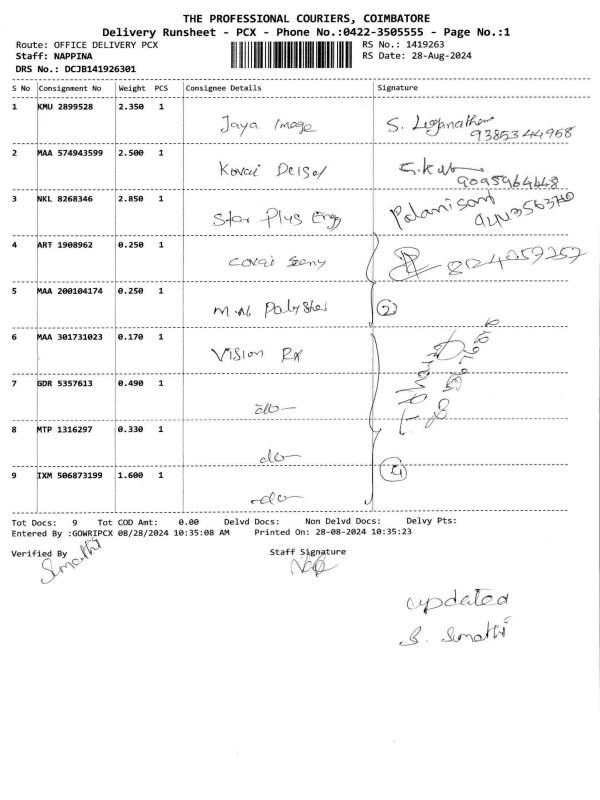 THE PROFESSIONAL COURIERS, COIMBATORE
Delivery Runsheet - PCX - Phone No.:0422-3505555 - Page No.:1
Route: OFFICE DELIVERY PCX RS No.: 1419263
Staff: NAPPINA RS Date: 28-Aug-2024
DRS No.: DCJB141926301
S No Consignment No Weight PCS Consignee Details Signature
1 KMU 2899528 2.350 1 Jaya Image S. Loganathan
9385344958
2 MAA 574943599 2.500 1 Kovai
3 NKL 8268346 2.850 1 Star Plus Engg Palanisamy
4 ART 1908962 0.250 1 covai 8124057257
5 MAA 200104174 0.250 1 M.N. 2
6 MAA 301731023 0.170 1 Vision Rx
7 GDR 5357613 0.490 1 do
8 MTP 1316297 0.330 1 do
9 IXM 506873199 1.600 1 do 4
Tot Docs: 9 Tot COD Amt: 0.00 Delvd Docs: Non Delvd Docs: Delvy Pts:
Entered By :GOWRIPCX 08/28/2024 10:35:08 AM Printed On: 28-08-2024 10:35:23
Verified By Staff Signature
Sumathi
updated
S. Sumathi